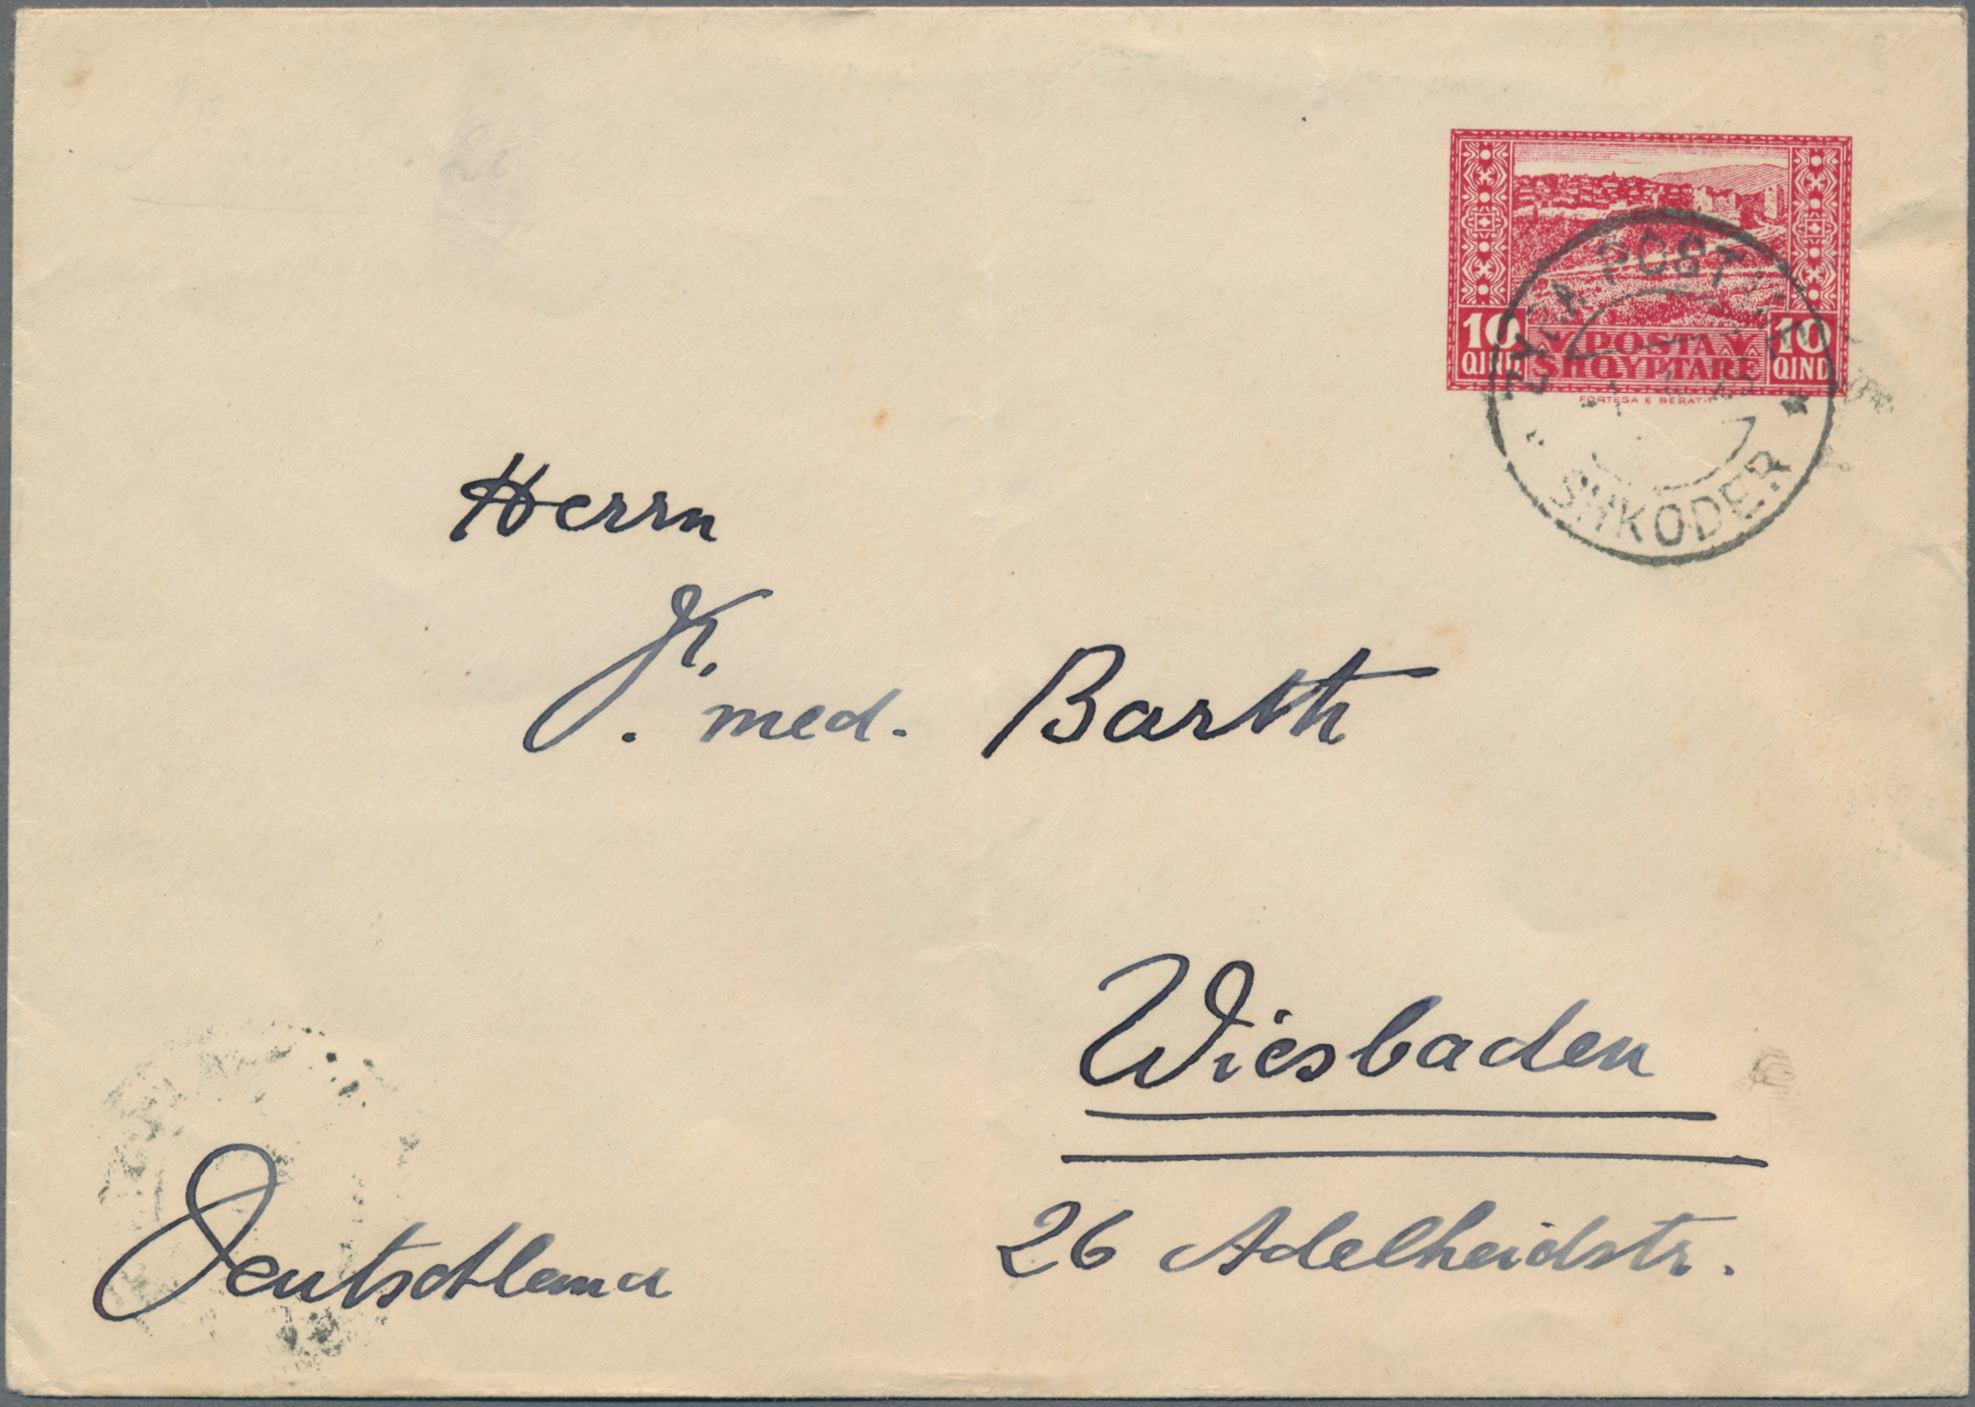 10 QIND POSTA SHQYPTARE 10 QIND
FORTESA E BERATIT
ZYRA POSTARE
SHKODER
Herrn
med. Barth
Wiesbaden
26 Adelheidstr.
Deutschland